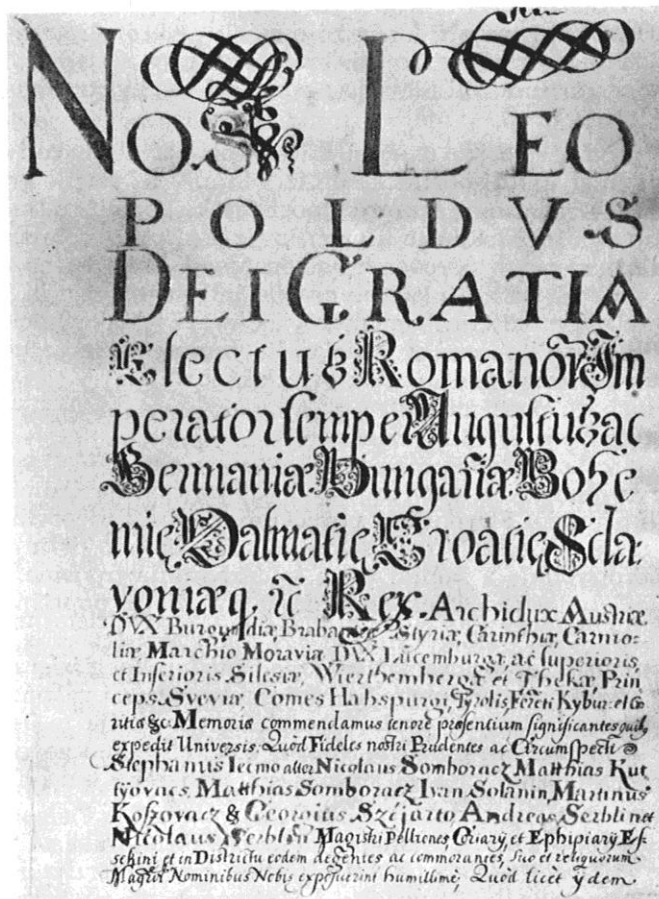 NOS LEO
POLDVS
DEI GRATIA
Electus Romanor̃ Im
perator semper Augustus ac
Germaniæ Hungariæ Bohe
mię Dalmatię Croatię Scla
voniæq. ĩc Rex. Archidux Austriæ
DVX Burgundiæ, Brabantiæ Styriæ, Carinthiæ, Carnio-
liæ, Marchio Moraviæ DVX Lucemburgæ, ac superioris,
et Inferioris Silesiæ, Wierthembergæ et Thekæ, Prin
ceps. Sveviæ, Comes Habspurgi, Tyrolis, Kyburg: et Go
ritiæ &c: Memoriæ commendamus tenore præsentium significantes quibꝰ
expedit Universis: Quòd Fideles nostri Prudentes ac Circumspecti
Stephanus alter Nicolaus Somboracz Matthias Kut
tyovacs, Matthias Somboracz Ivan Solanin, Martinus
Koszovacz & Georgius Széjarto, Andreas, Serblinet
Nicolaus Serblin Magistri Pelliones, Coriarÿ, et Ephipiarÿ Es-
sekini et in Districtu eodem degentes ac commorantes, suo et reliquorum
Magistror̃ Nominibus Nobis exposuerint humillimè, Quòd licet ÿdem